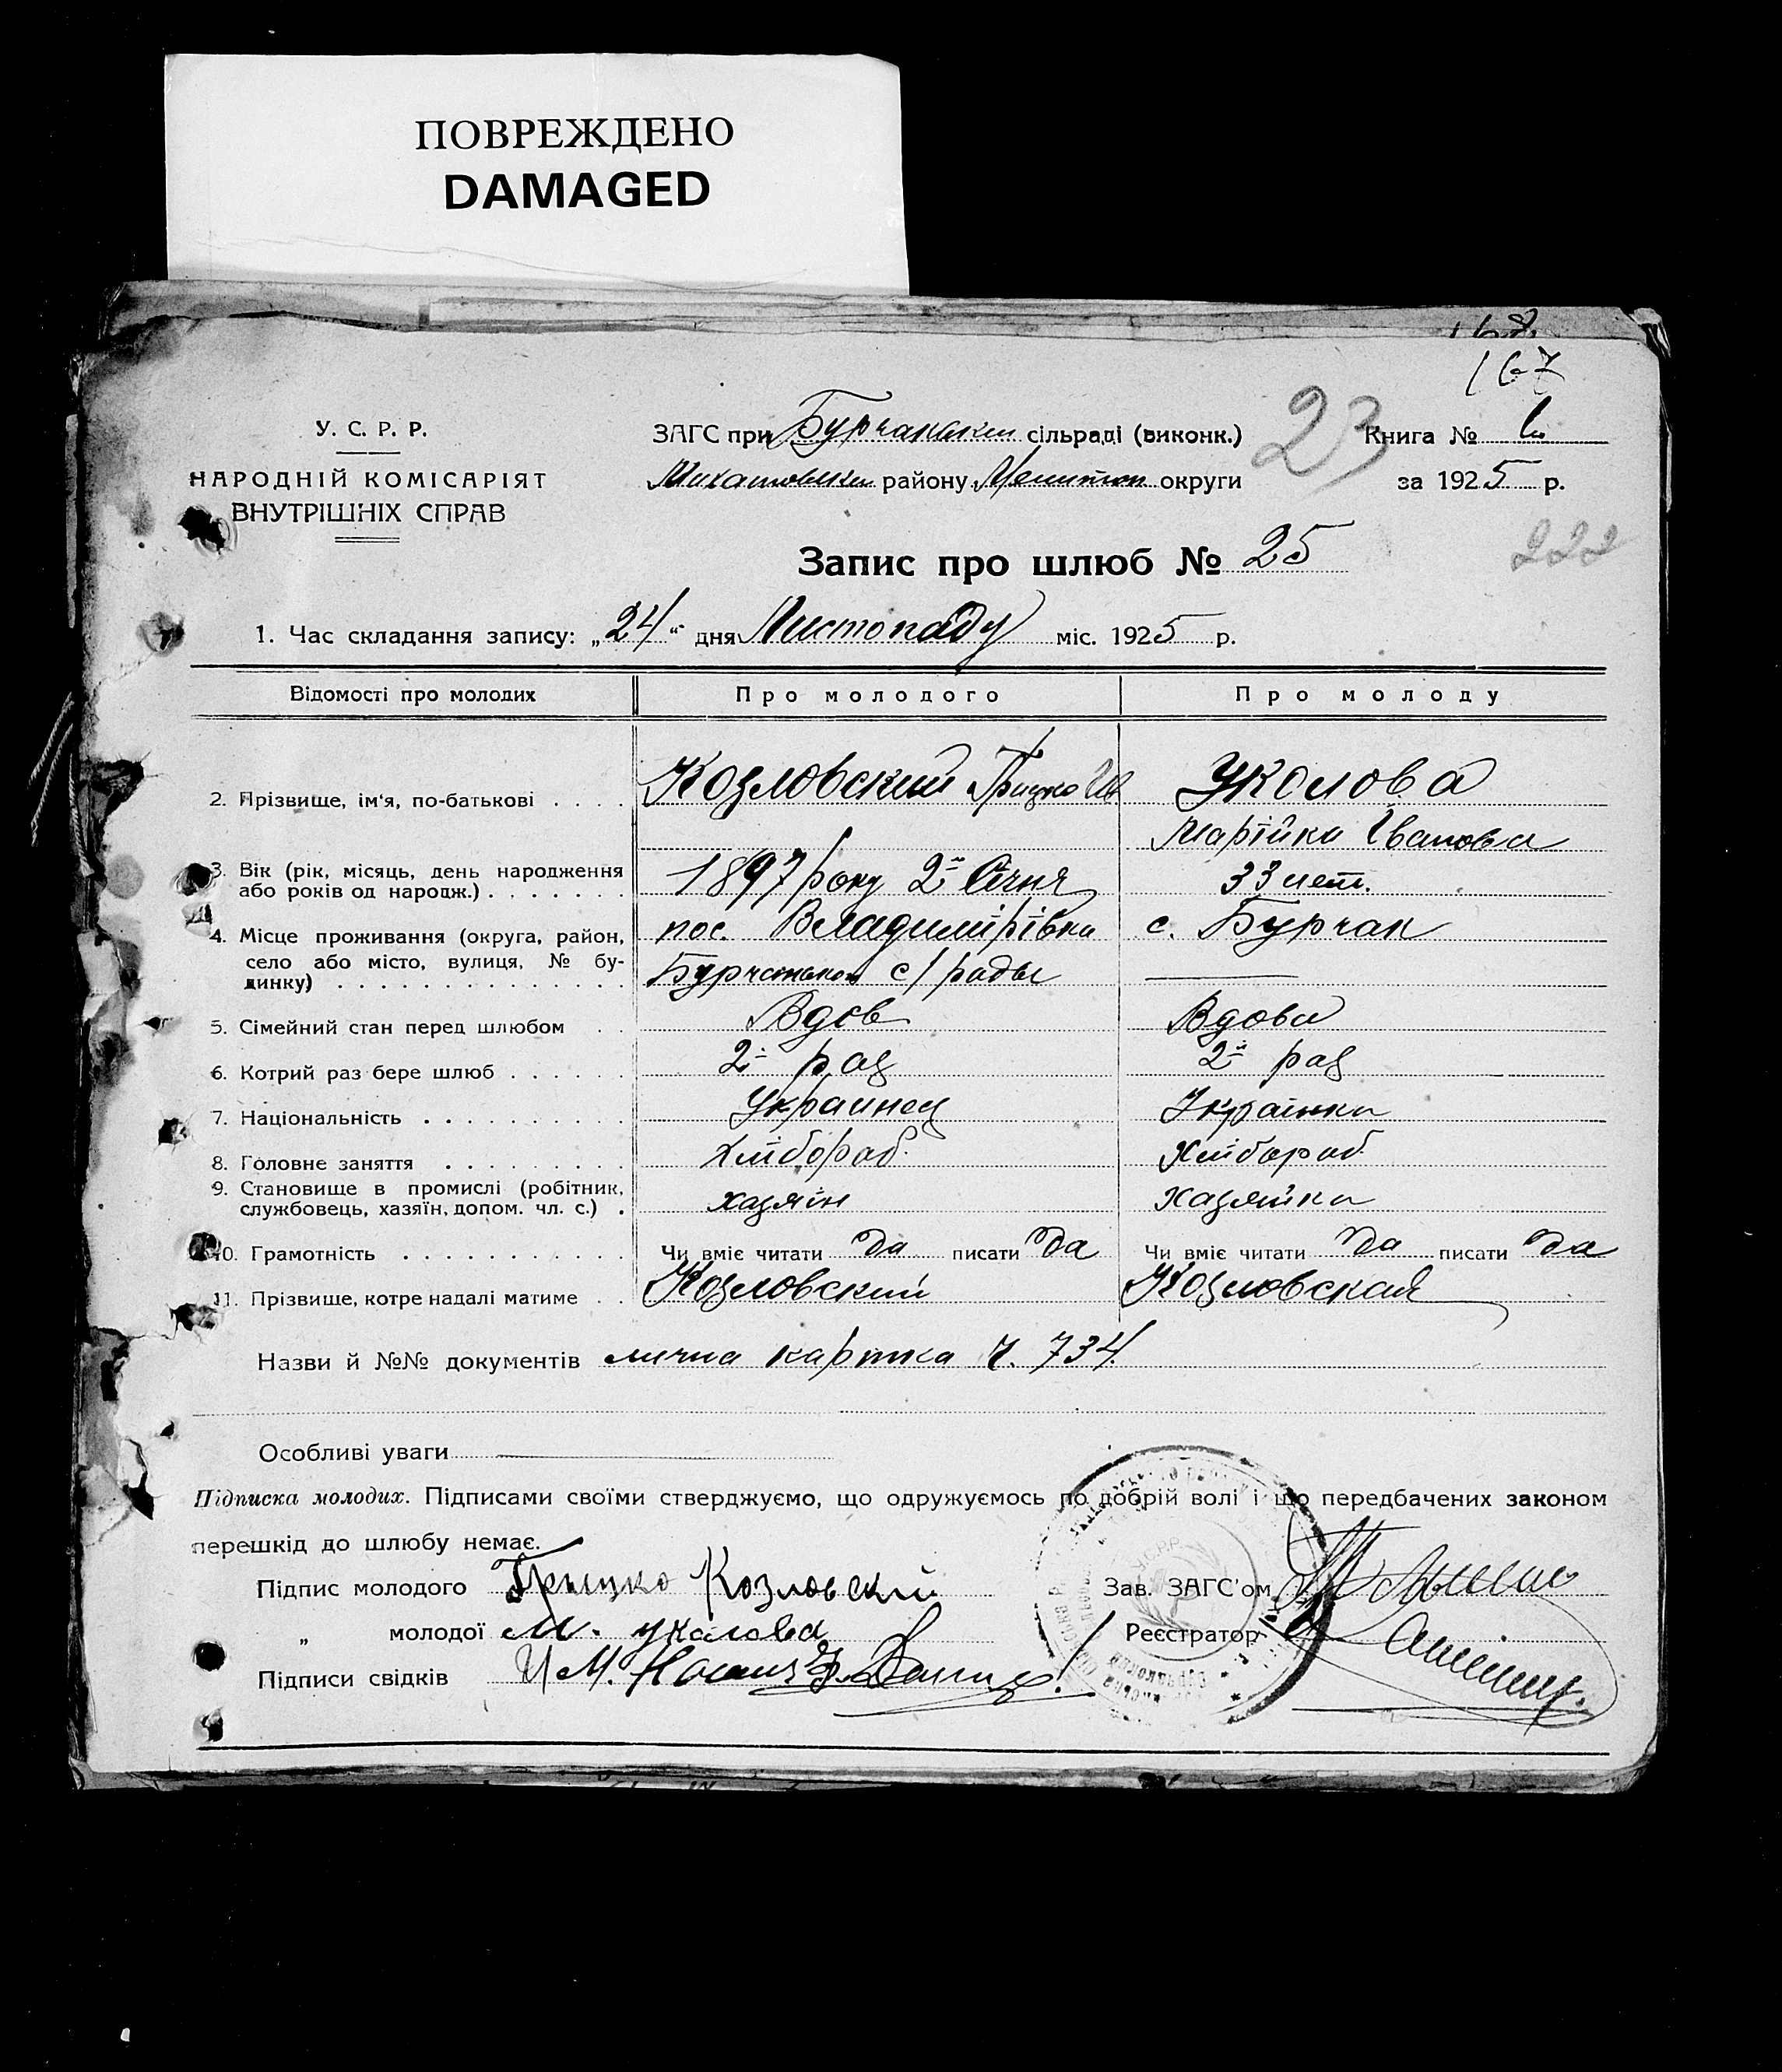 ПОВРЕЖДЕНО
DAMAGED
168
167
У. С. Р. Р.
НАРОДНІЙ КОМІСАРІЯТ
ВНУТРІШНІХ СПРАВ
ЗАГС при Бурчакськім сільраді (виконк.)
23
Книга №
району Мелитоп округи
за 1925 р.
Запис про шлюб № 25
222
1. Час складання запису: „24“ дня Листопаду міс. 1925 р.
Відомості про молодих Про молодого Про молоду
2. Прізвище, ім'я, по-батькові . . . . Козловский Грицко Ив Уколова
Марійка Івановна
3. Вік (рік, місяць, день народження
або років од народж.) . . . . . . . 1897 року 2й Січня 33 лет.
4. Місце проживання (округа, район, пос. Владимірівка с. Бурчак
село або місто, вулиця, № бу-
динку) . . . . . . . . . . . . . . с/ради
5. Сімейний стан перед шлюбом . . Вдов Вдова
6. Котрий раз бере шлюб . . . . . . 2й раз 2й раз
7. Національність . . . . . . . . . . Украинец Українка
8. Головне заняття . . . . . . . . . Хлібороб. Хлібороб
9. Становище в промислі (робітник,
службовець, хазяїн, допом. чл. с.) . хазяін Хазяйка
10. Грамотність . . . . . . . . . . . Чи вміє читати да писати да Чи вміє читати да писати да
11. Прізвище, котре надалі матиме . . Козловский Козловская
Назви й №№ документів лична картка Ч. 734.
Особливі уваги
Підписка молодих. Підписами своїми стверджуємо, що одружуємось по добрій волі і що передбачених законом
перешкід до шлюбу немає.
Підпис молодого Грицко Козловский Зав. ЗАГС'ом
„ молодої М. Уколова Реєстратор
Підписи свідків
У.С.Р.Р.